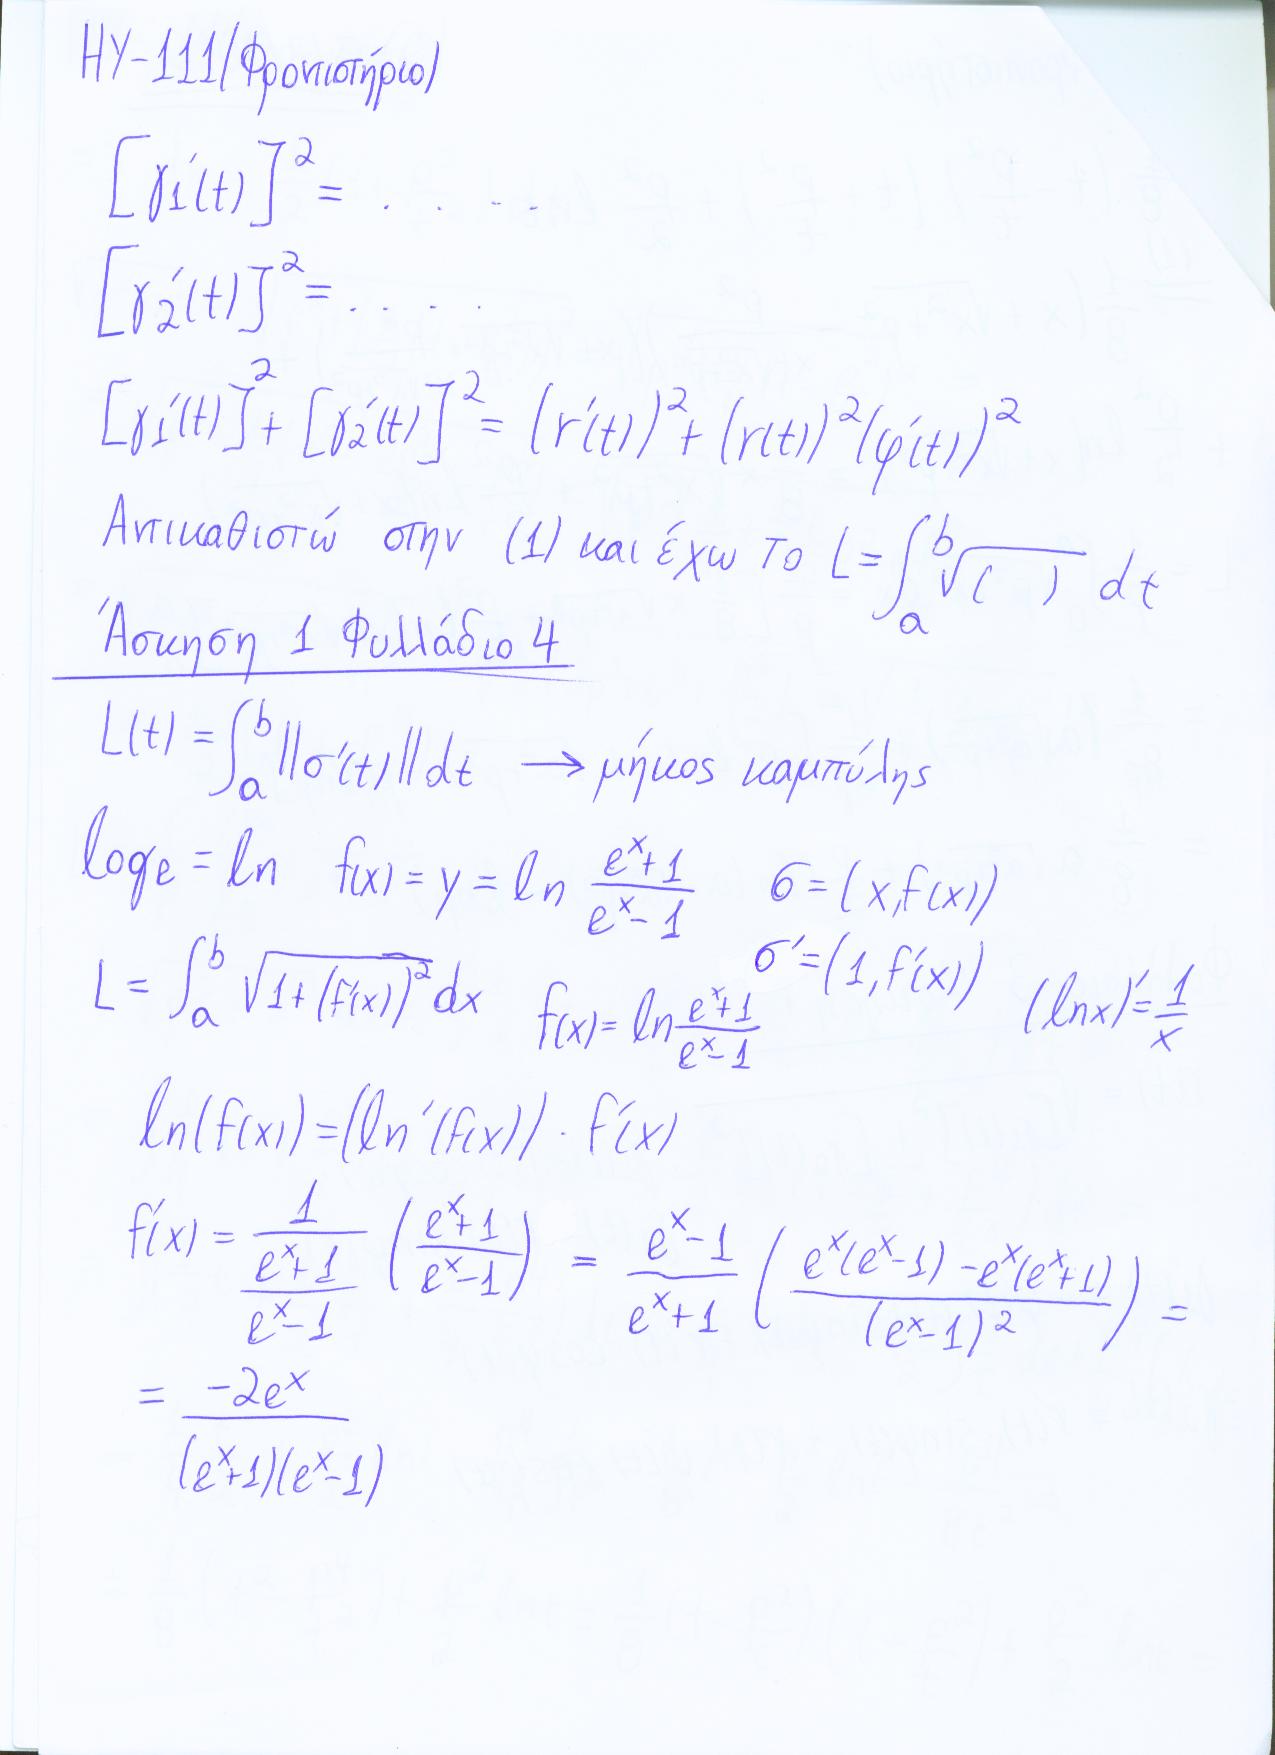 ΗΥ-111/Φροντιστήριο)
[γ1'(t)]² = . . . .
[γ2'(t)]² = . . . .
[γ1'(t)]² + [γ2'(t)]² = (r'(t))² + (r(t))²(φ'(t))²
Αντικαθιστώ στην (1) και έχω το L = ∫_a^b √( ) dt
Άσκηση 1 Φυλλάδιο 4
L(t) = ∫_a^b ||σ'(t)|| dt → μήκος καμπύλης
loge = ln f(x) = y = ln (e^x+1)/(e^x-1) σ = (x, f(x))
L = ∫_a^b √(1+(f'(x))²) dx f(x) = ln (e^x+1)/(e^x-1) σ' = (1, f'(x)) (lnx)' = 1/x
ln(f(x)) = (ln'(f(x)) · f'(x)
f'(x) = 1/((e^x+1)/(e^x-1)) ((e^x+1)/(e^x-1)) = (e^x-1)/(e^x+1) ((e^x(e^x-1) - e^x(e^x+1))/(e^x-1)²) =
= -2e^x/((e^x+1)(e^x-1))